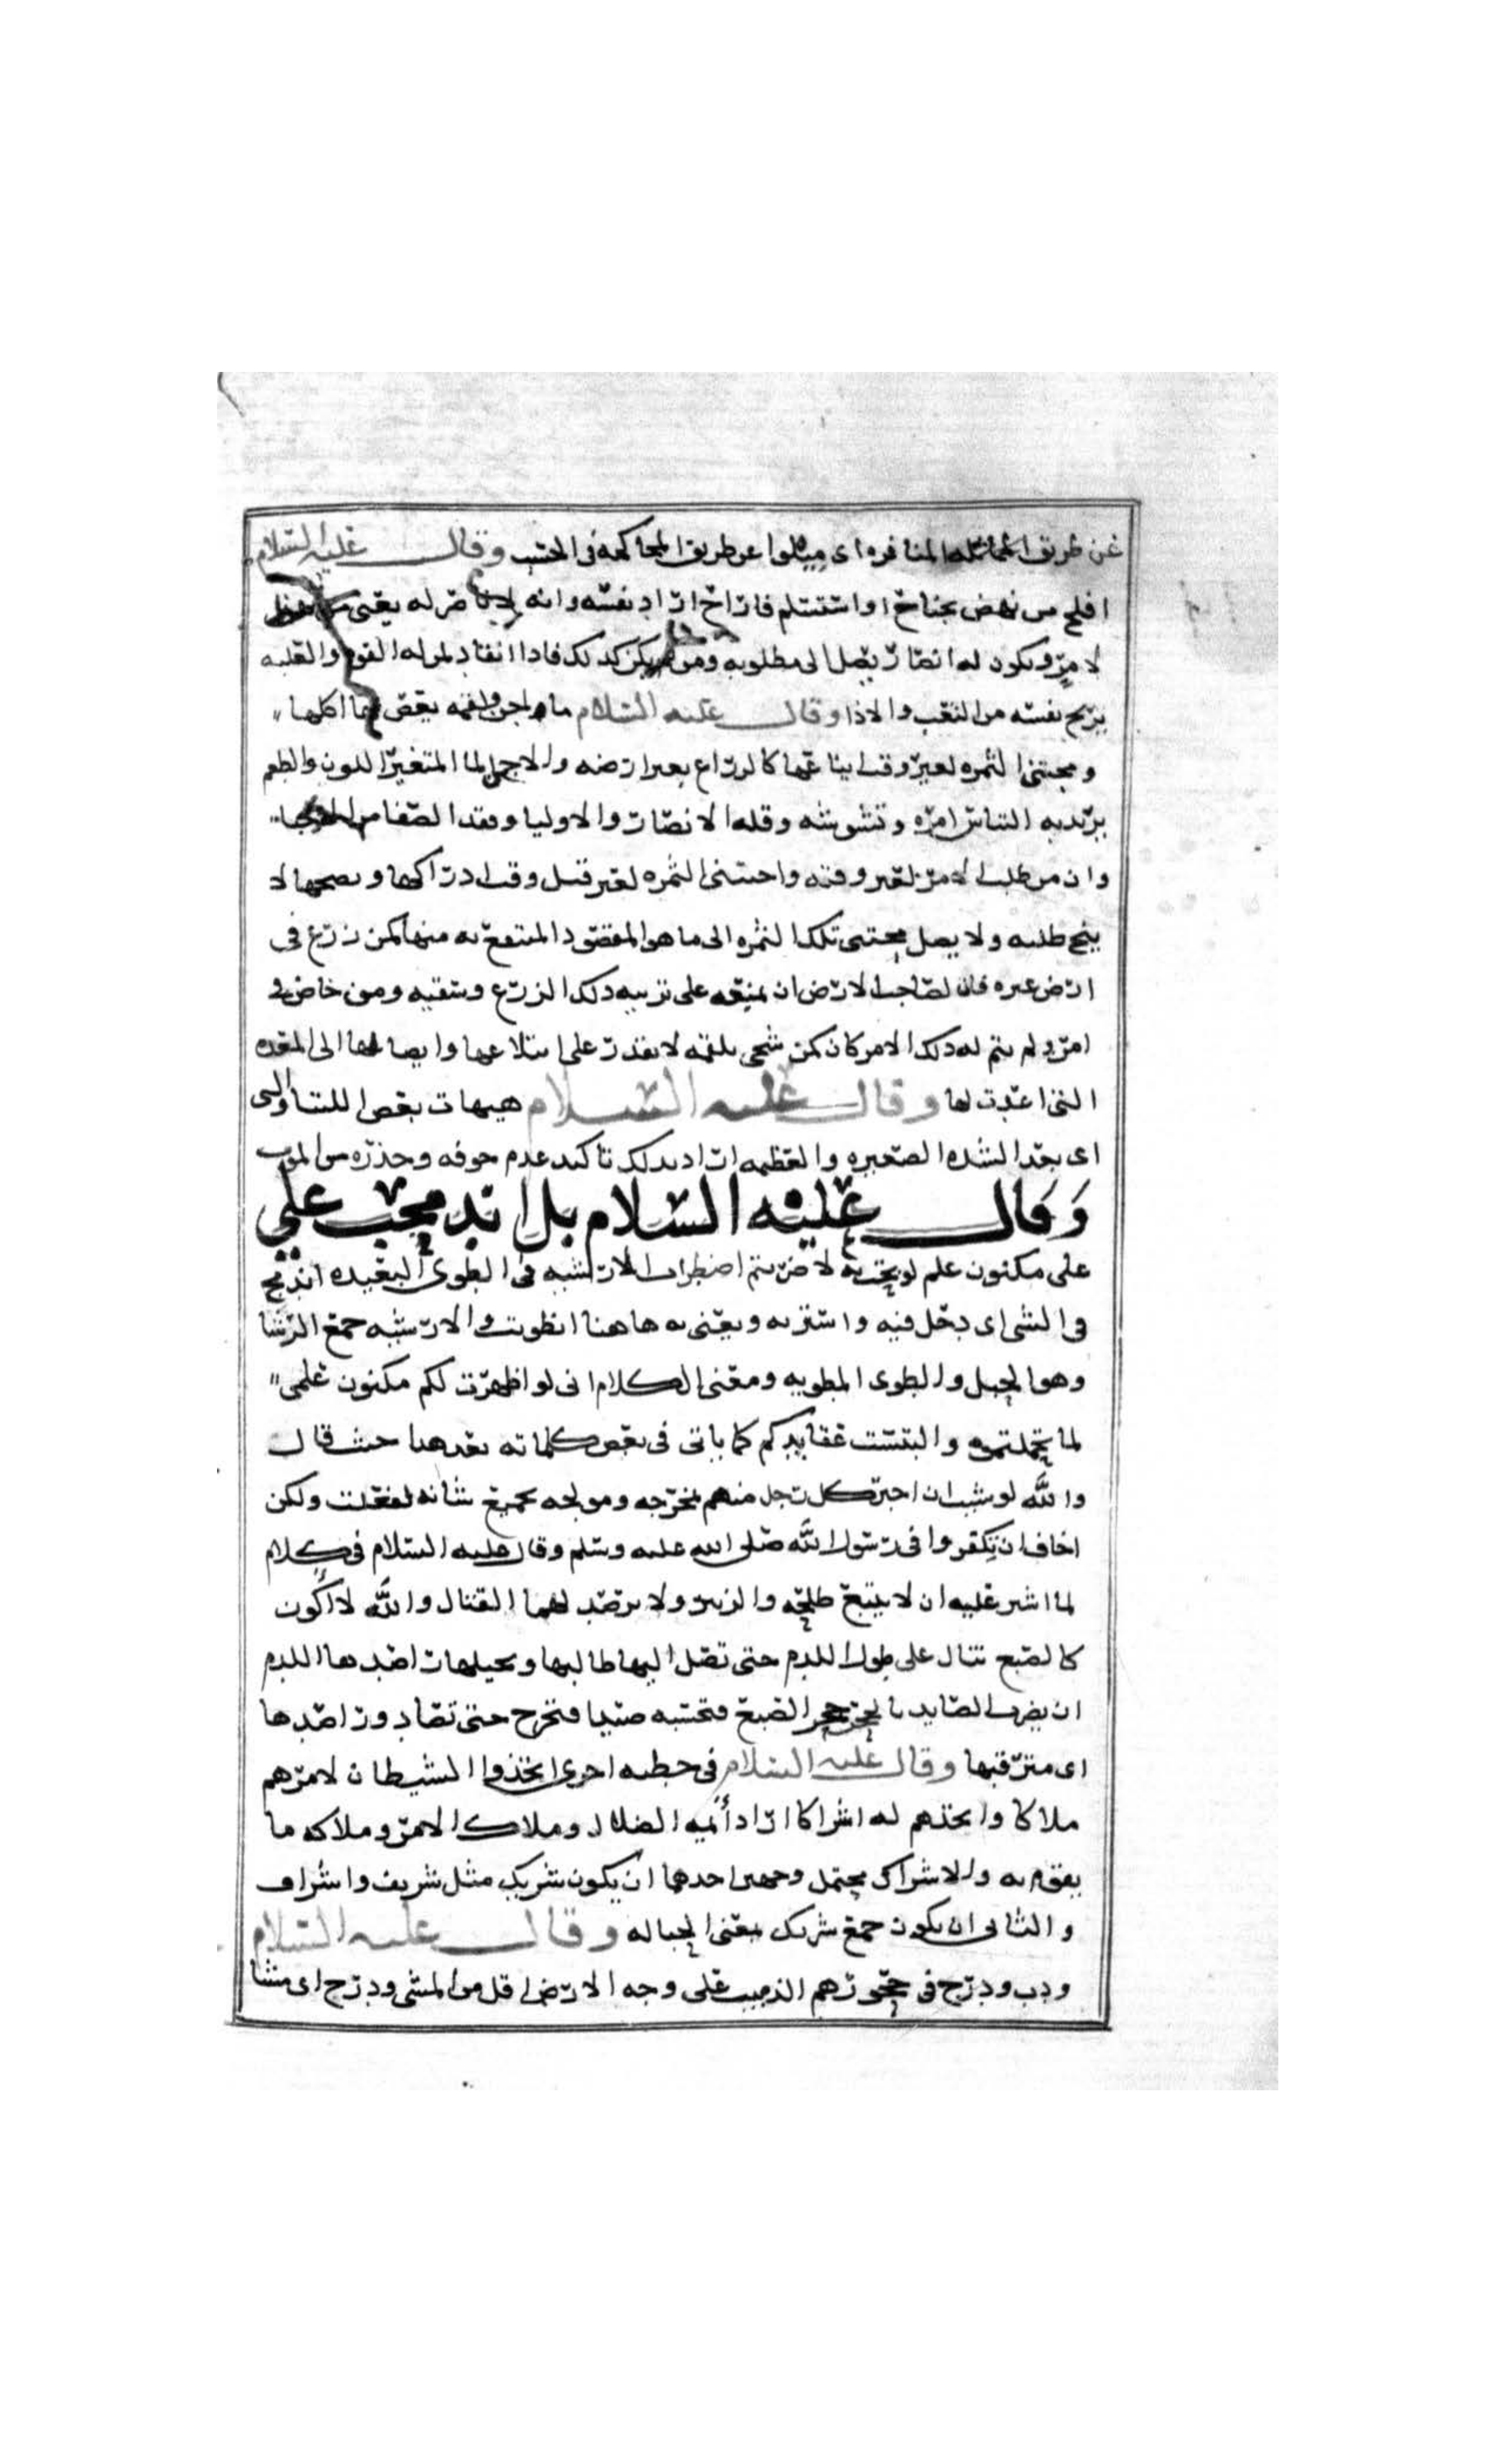 عن طريق المنافره اى ميلوا عن طريق المحاكمه فى الحسب وقال عليه السلام
افلح من نهض بجناح او استسلم فاراح اراد نفسه وانه لا ناصر له يعنى من نهض
لامر ويكون له انصار يصل الى مطلوبه ومن لم يكن كذلك فاذا انقاد لمن له القوه والغلبه
يريح نفسه من التعب والاذا وقال عليه السلام ماء اجن ولقمه يغص بها اكلها
ومجتنى الثمره لغير وقت ايناعها كالزراع بغير ارضه والاجن الما المتغير اللون والطعم
يريد به التباس امره وتشوشه وقله الانصار والاوليا وفقد الصفا من
وان من طلب الامر لغير وقته واجتنى الثمره لغير قبل وقت ادراكها ونضجها لا
ينجح طلبه ولا يصل مجتنى تلك الثمره الى ما هو المقصود المنتفع به منها كمن زرع فى
ارض غيره فان لصاحب الارض ان يمنعه على تربيه ذلك الزرع وسقيه ومن خاض فى
امر ولم يتم له ذلك الامر كان كمن شجى بلقمه لا يقدر على ابتلاعها وايصالها الى المعده
التى اعدت لها وقال عليه السلام هيهات بعد اللتيا والتى
اى بعد الشده الصغيره والعظيمه اراد بذلك تاكيد عدم خوفه وحذره من الموت
وَقال عليه السلام بل اندمجت على
على مكنون علم لو بحت به لاضطربتم اضطراب الارشيه فى الطوى البعيده اندمج
فى الشى اى دخل فيه واستتر به ويعنى به هاهنا انطويت والارشيه جمع الرشا
وهو الحبل والطوى المطويه ومعنى الكلام انى لو اظهرت لكم مكنون علمى
لما تحملتموه والتبست عقايدكم كما ياتى فى بعض كلماته بعد هذا حيث قال
والله لو شيت ان اخبر كل رجل منهم بمخرجه ومولجه بجميع شانه لفعلت ولكن
اخاف ان تكفروا فى رسول الله صلى الله عليه وسلم وقال عليه السلام فى كلام
لما اشير عليه ان لا يتبع طلحه والزبير ولا يرصد لهما القتال والله لا اكون
كالضبع تنام على طول اللدم حتى تصل اليها طالبها ويختلها راصدها اللدم
ان يضرب الصايد بالحجر جحر الضبع فتحسبه صيدا فتخرج حتى تصاد وراصدها
اى مترقبها وقال عليه السلام فى خطبه اخرى اتخذوا الشيطان لامرهم
ملاكا واتخذهم له اشراكا اراد أئمه الضلال وملاك الامر وملاكه ما
يقوم به والاشراك يحتمل وجهين احدهما ان يكون شريك مثل شريف واشراف
والثانى ان يكون جمع شرك بمعنى الحباله وقال عليه السلام
ودب ودرج فى حجورهم الدبيب على وجه الارض اقل من المشى ودرج اى مشا